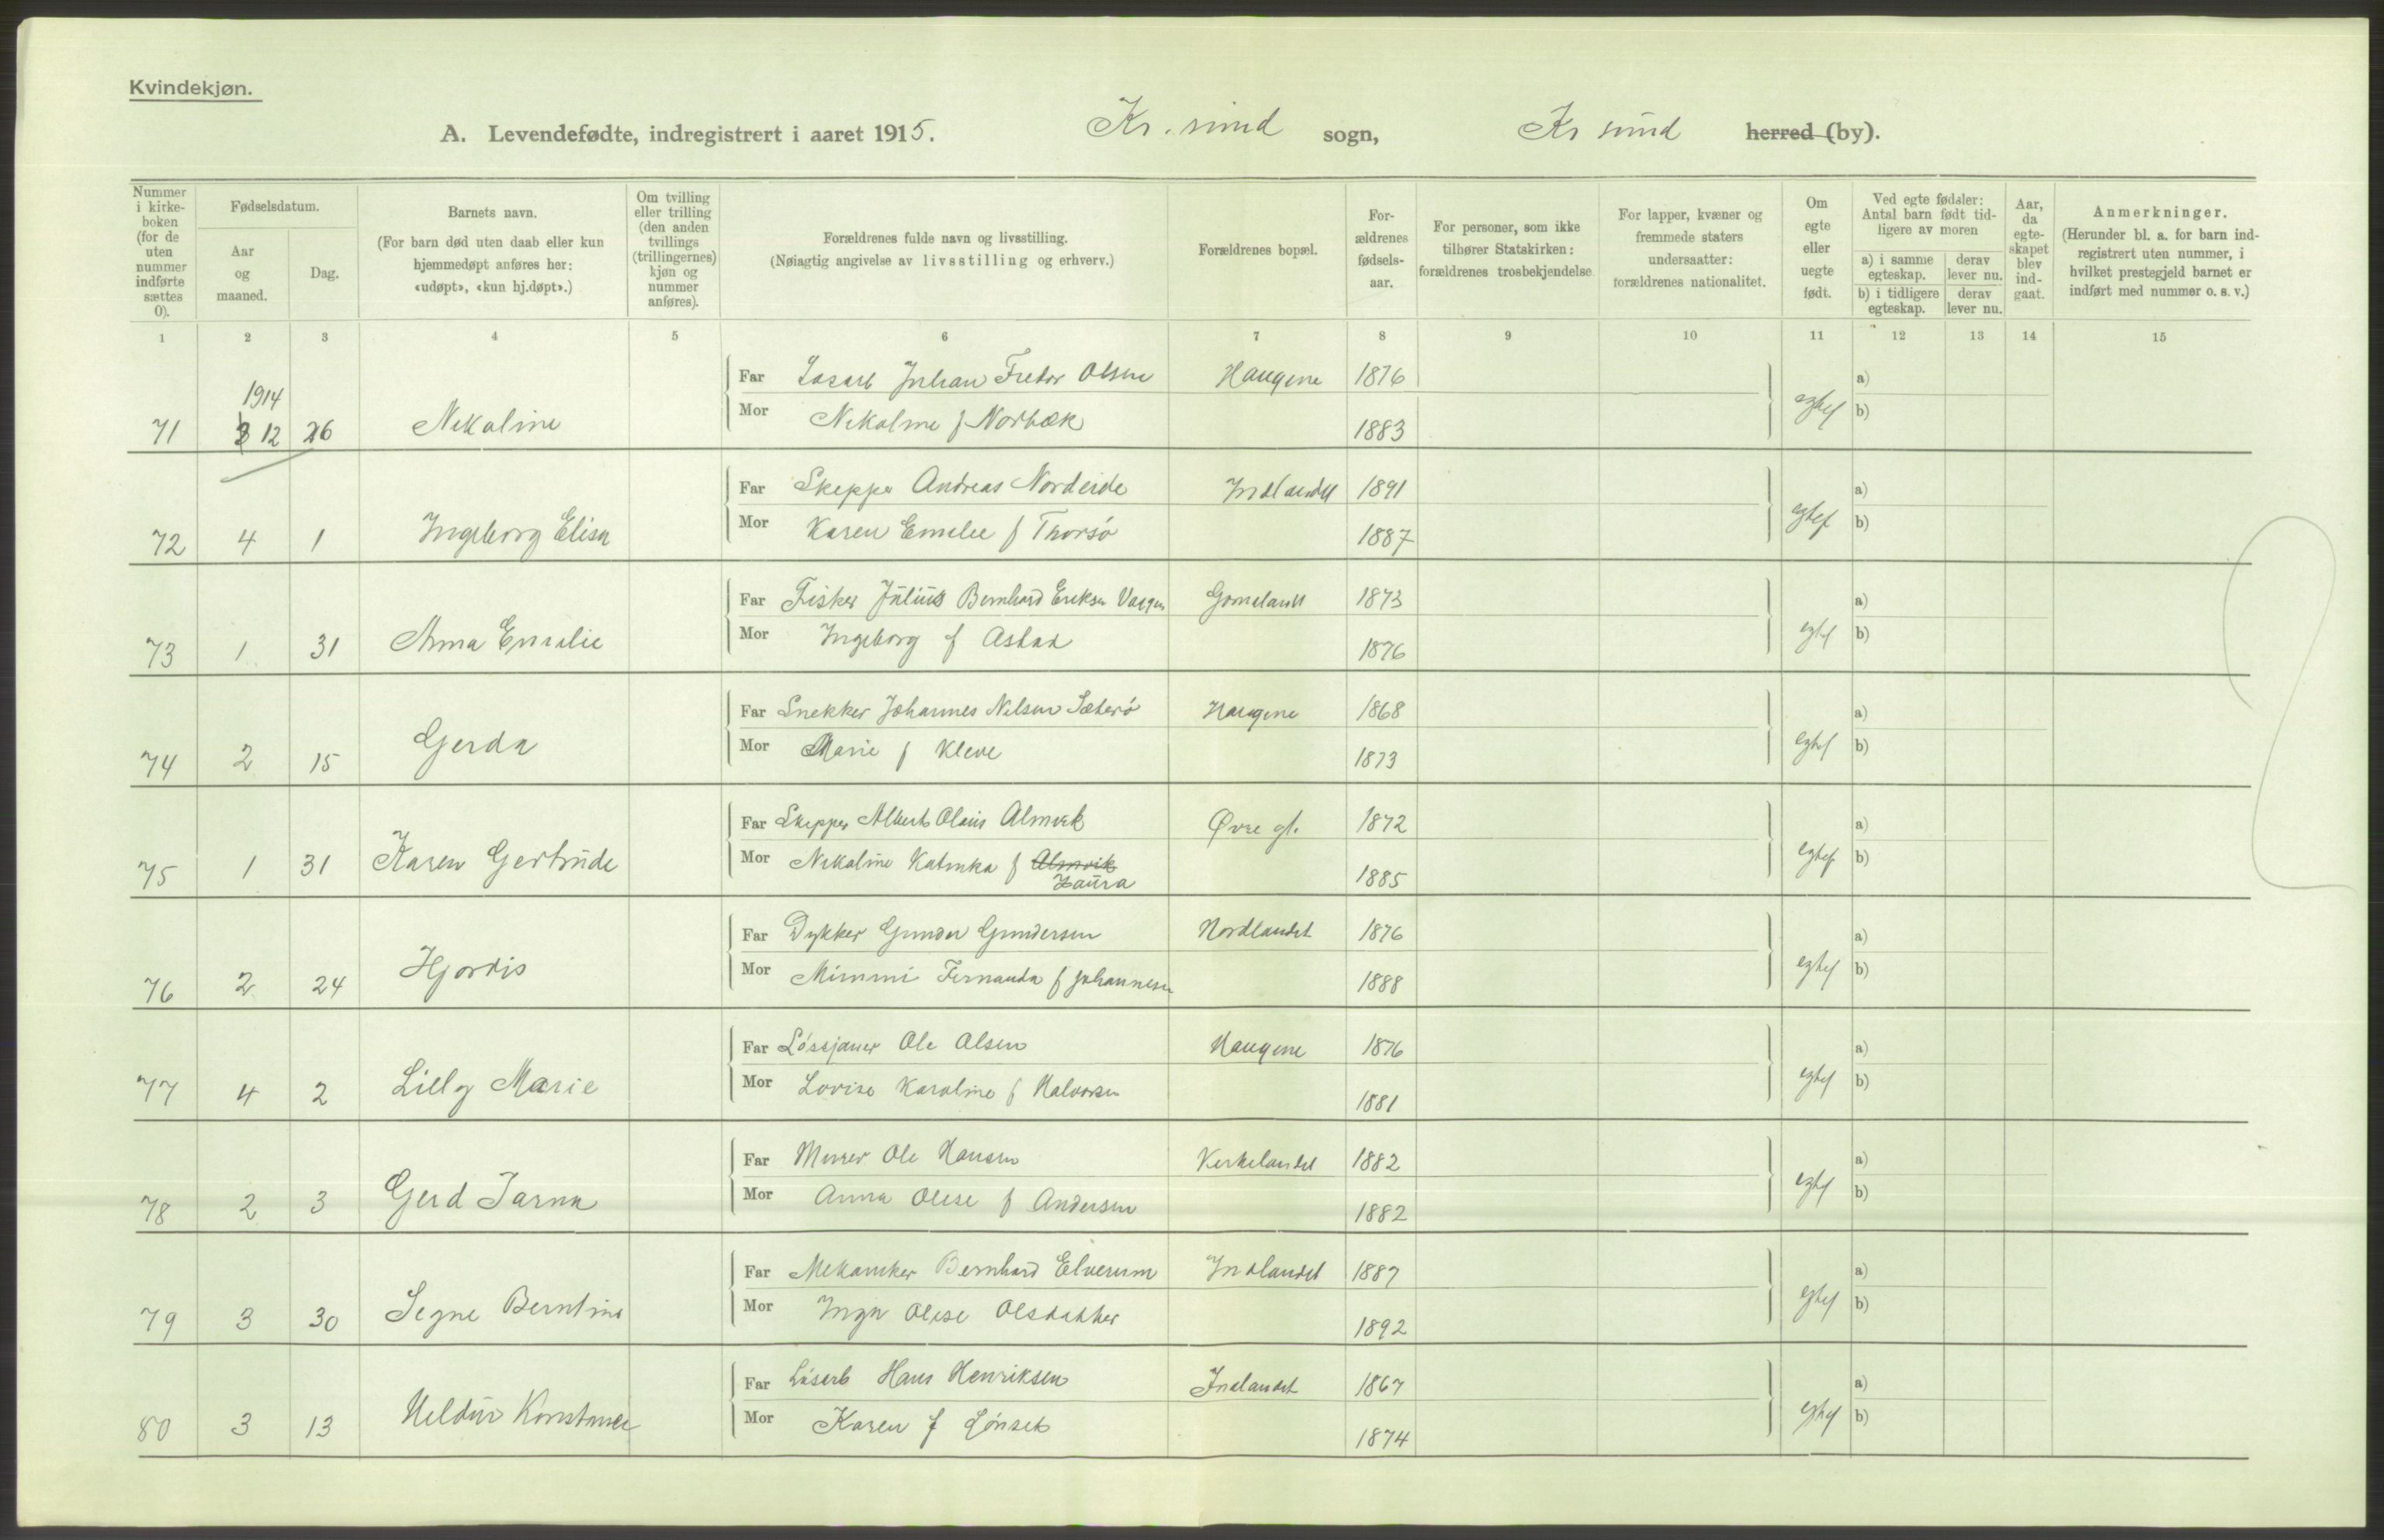 Kvindekjøn.
A. Levendefødte, indregistrert i aaret 1915. Kr. sund sogn, Kr sund herred (by).
Nummer i kirkeboken (for de uten nummer indførte sættes 0).
Fødselsdatum.
Aar og maaned.
Dag.
Barnets navn.
(For barn død uten daab eller kun hjemmedøpt anføres her: «udøpt», «kun hj.døpt».)
Om tvilling eller trilling (den anden tvillings (trillingernes) kjøn og nummer anføres).
Forældrenes fulde navn og livsstilling.
(Nøiagtig angivelse av livsstilling og erhverv.)
Forældrenes bopæl.
Forældrenes fødselsaar.
For personer, som ikke tilhører Statskirken: forældrenes trosbekjendelse
For lapper, kvæner og fremmede staters undersaatter: forældrenes nationalitet.
Om egte eller uegte født.
Ved egte fødsler: Antal barn født tidligere av moren
a) i samme egteskap. derav lever nu.
b) i tidligere egteskap. derav lever nu.
Aar, da egteskapet blev indgaat.
Anmerkninger.
(Herunder bl. a. for barn indregistrert uten nummer, i hvilket prestegjeld barnet er indført med nummer o. s. v.)
1 2 3 4 5 6 7 8 9 10 11 12 13 14 15
Far Johan Olsen Haugene 1876 a)
1914
71 12 26 Nikoline Mor Nikoline f Norbæk 1883 b)
Far Skipper Andreas Nordeide Indlandet 1891 a)
72 4 1 Ingeborg Elisa Mor Karen Emelie f Thorsø 1887 b)
Far Fisker Julius Bernhard Eriksen Gomelandet 1873 a)
73 1 31 Anna Emilie Mor Ingeborg f 1876 b)
Far Snekker Johannes Nilsen Sæterø Haugene 1868 a)
74 2 15 Gerda Mor Marie f Kleve 1873 b)
Far Skipper Albert Olaus Almvik Øvre gt. 1872 a)
75 1 31 Karen Gertrude Mor Nikoline Katinka f Almvik
Laura 1885 b)
Far Dykker Gunder Gundersen Nordlandet 1876 a)
76 2 24 Hjordis Mor Mimmi Fernanda f Johannesen 1888 b)
Far Løssjauer Ole Olsen Haugene 1876 a)
77 4 2 Lilly Marie Mor Lovise Karoline f Halvorsen 1881 b)
Far Murer Ole Hansen Kirkelandet 1882 a)
78 2 3 Gerd Mor Anna Olise f Andersen 1882 b)
Far Mekaniker Bernhard Elverum Indlandet 1887 a)
79 3 30 Signe Berntine Mor Inga Olise Olsdatter 1892 b)
Far Løsarb Hans Henriksen Indlandet 1867 a)
80 3 13 Hildur Konstance Mor Karen f Lønset 1874 b)